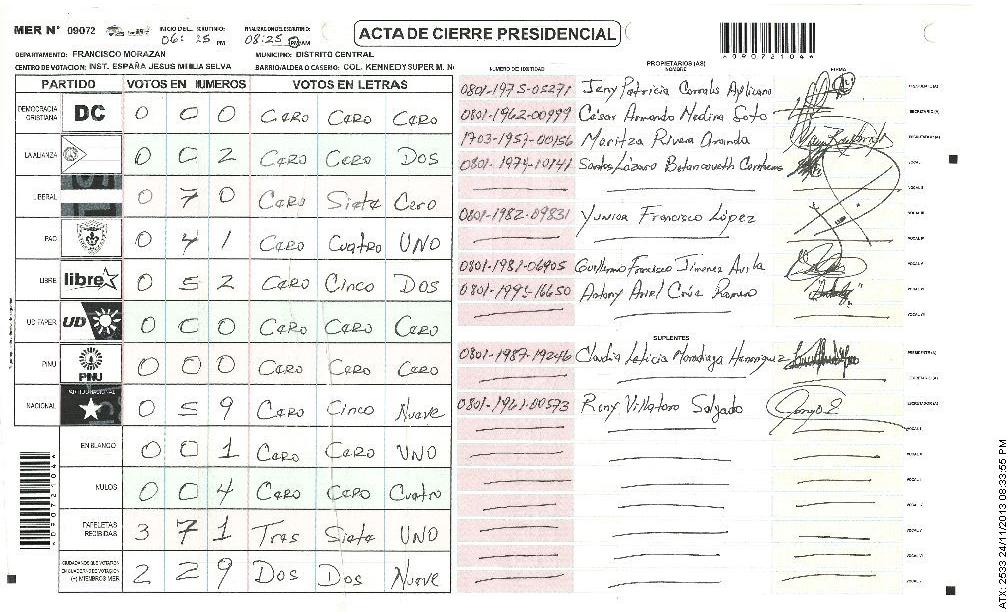 MER N° 09072 INICIO DEL ESCRUTINIO: 06:25 PM FINALIZACION ESCRUTINIO: 08:25 PM
ACTA DE CIERRE PRESIDENCIAL
*09072104*
DEPARTAMENTO: FRANCISCO MORAZAN MUNICIPIO: DISTRITO CENTRAL
CENTRO DE VOTACION: INST. ESPAÑA JESUS MILLA SELVA BARRIO/ALDEA O CASERIO: COL. KENNEDY SUPER M. N
PARTIDO VOTOS EN NUMEROS VOTOS EN LETRAS
DEMOCRACIA CRISTIANA DC 0 0 0 Cero Cero Cero
LA ALIANZA 0 0 2 Cero Cero Dos
LIBERAL 0 7 0 Cero Siete Cero
PAC 0 4 1 Cero Cuatro UNO
LIBRE libre 0 5 2 Cero Cinco Dos
UD FAPER UD 0 0 0 Cero Cero Cero
PINU PINU 0 0 0 Cero Cero Cero
NACIONAL 0 5 9 Cero Cinco Nueve
EN BLANCO 0 0 1 Cero Cero UNO
NULOS 0 0 4 Cero Cero Cuatro
PAPELETAS RECIBIDAS 3 7 1 Tres Siete UNO
CIUDADANOS QUE VOTARON EN CUADERNO DE VOTACION (+) MIEMBROS MER 2 2 9 Dos Dos Nueve
*09072104*
NUMERO DE IDENTIDAD PROPIETARIOS (AS) NOMBRE FIRMA
0801-1975-05271 Jeny Patricia Corrales
0801-1962-00999 César Armando Medina Soto
1703-1957-00156 Maritza Rivera
0801-1974-10141 Santos Lázaro Betancourth Contreras
0801-1982-09831 Yunior Francisco López
0801-1981-06905 Guillermo Francisco Jimenez Avila
0801-1995-16650 Antony Ariel Cruz Romero
SUPLENTES
0801-1987-19246 Claudia Leticia Moradiaga Henriquez
0801-1961-00573 Rony Villatoro Salgado
ATX: 2533 24/11/2013 08:33:55 PM